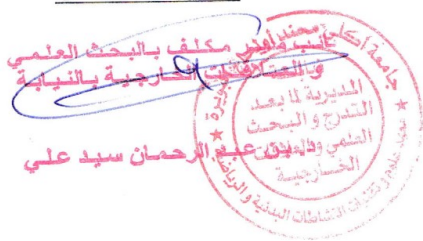 نائب مدير مكلف بالبحث العلمي
و العلاقات الخارجية بالنيابة
عبد الرحمان سيد علي
جامعة أكلي محند أولحاج
البويرة
المديرية لما بعد
التدرج و البحث
العلمي و العلاقات
الخارجية
معهد علوم و تقنيات النشاطات البدنية و الرياضية